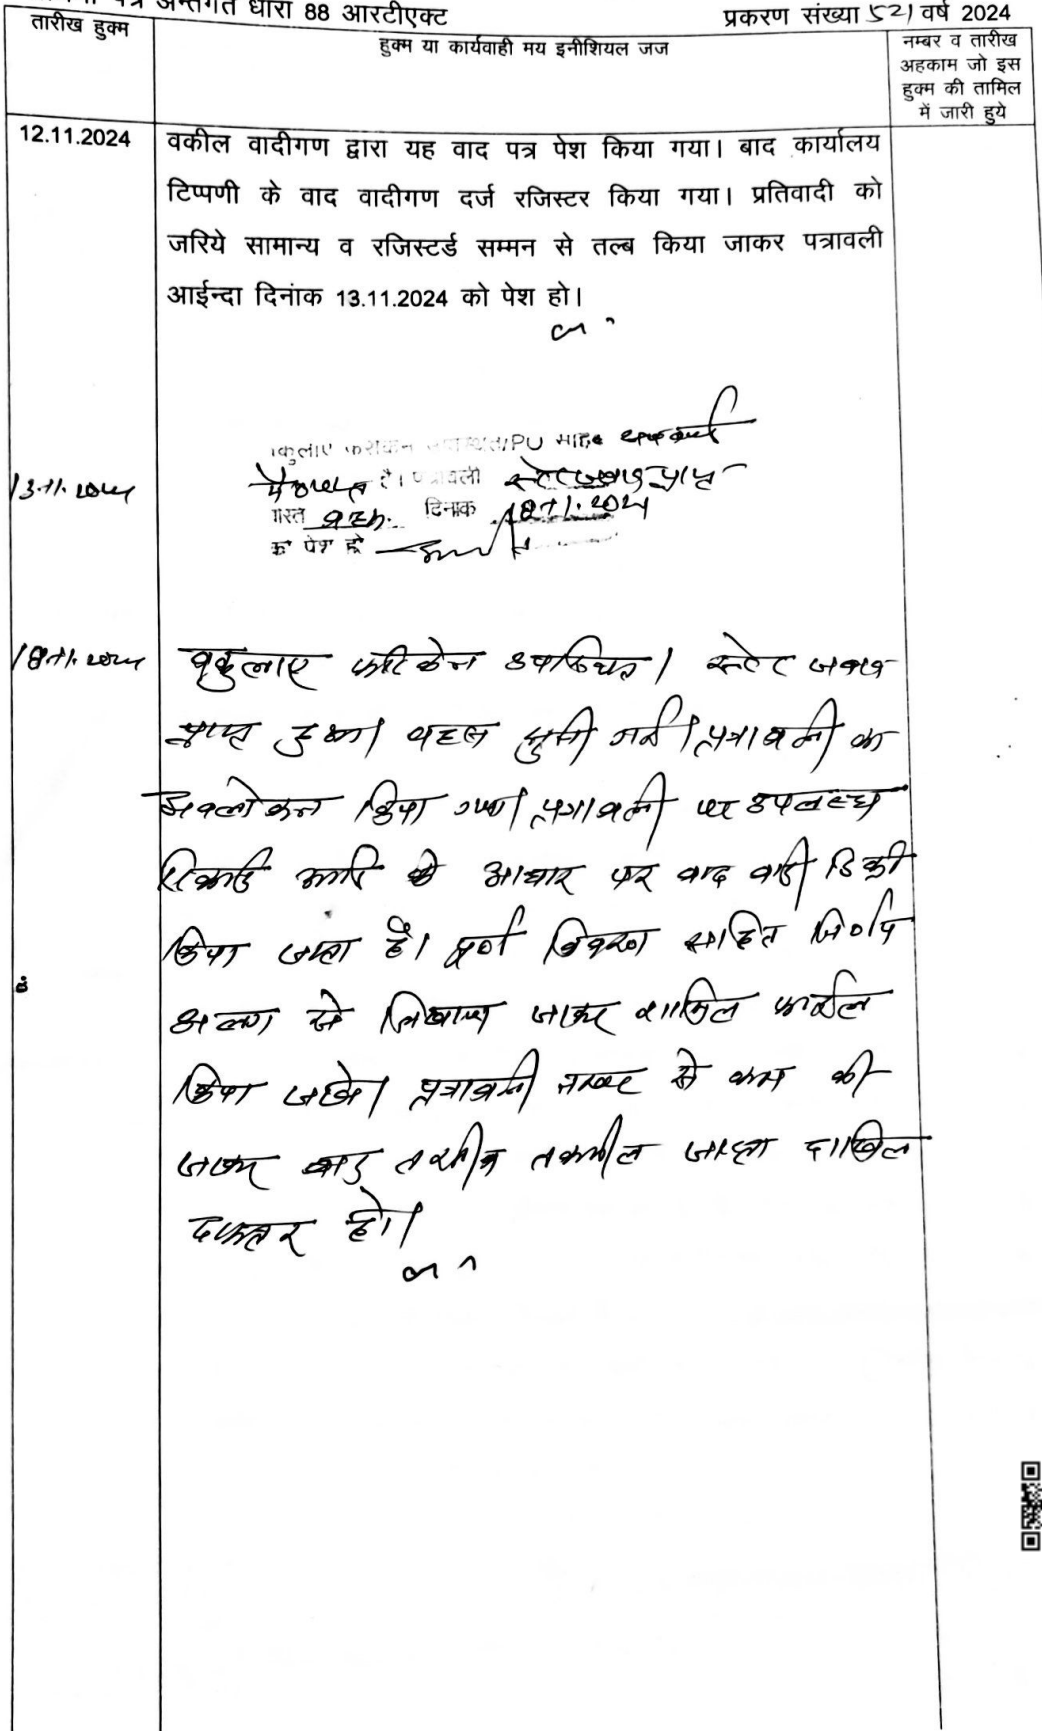 अन्तर्गत धारा 88 आरटीएक्ट
प्रकरण संख्या 521 वर्ष 2024
तारीख हुक्म
हुक्म या कार्यवाही मय इनीशियल जज
नम्बर व तारीख
अहकाम जो इस
हुक्म की तामिल
में जारी हुये
12.11.2024
वकील वादीगण द्वारा यह वाद पत्र पेश किया गया। बाद कार्यालय
टिप्पणी के वाद वादीगण दर्ज रजिस्टर किया गया। प्रतिवादी को
जरिये सामान्य व रजिस्टर्ड सम्मन से तल्ब किया जाकर पत्रावली
आईन्दा दिनांक 13.11.2024 को पेश हो।
13.11.2024
है। पत्रावली
बहस दिनांक 18.11.2024
को पेश हो
18.11.2024
वकुलाए फरिकेन उपस्थित। स्टेट जवाब
प्राप्त हुआ। बहस सुनी गई। पत्रावली का
अवलोकन किया गया। पत्रावली पर उपलब्ध
रिकार्ड आदि के आधार पर वाद वादी डिक्री
किया जाता है। पूर्ण विवरण सहित निर्णय
अलग से लिखाया जाकर शामिल फाईल
किया जावे। पत्रावली नम्बर से कम की
जाकर बाद तकमील जाब्ता दाखिल
दफ्तर हो।